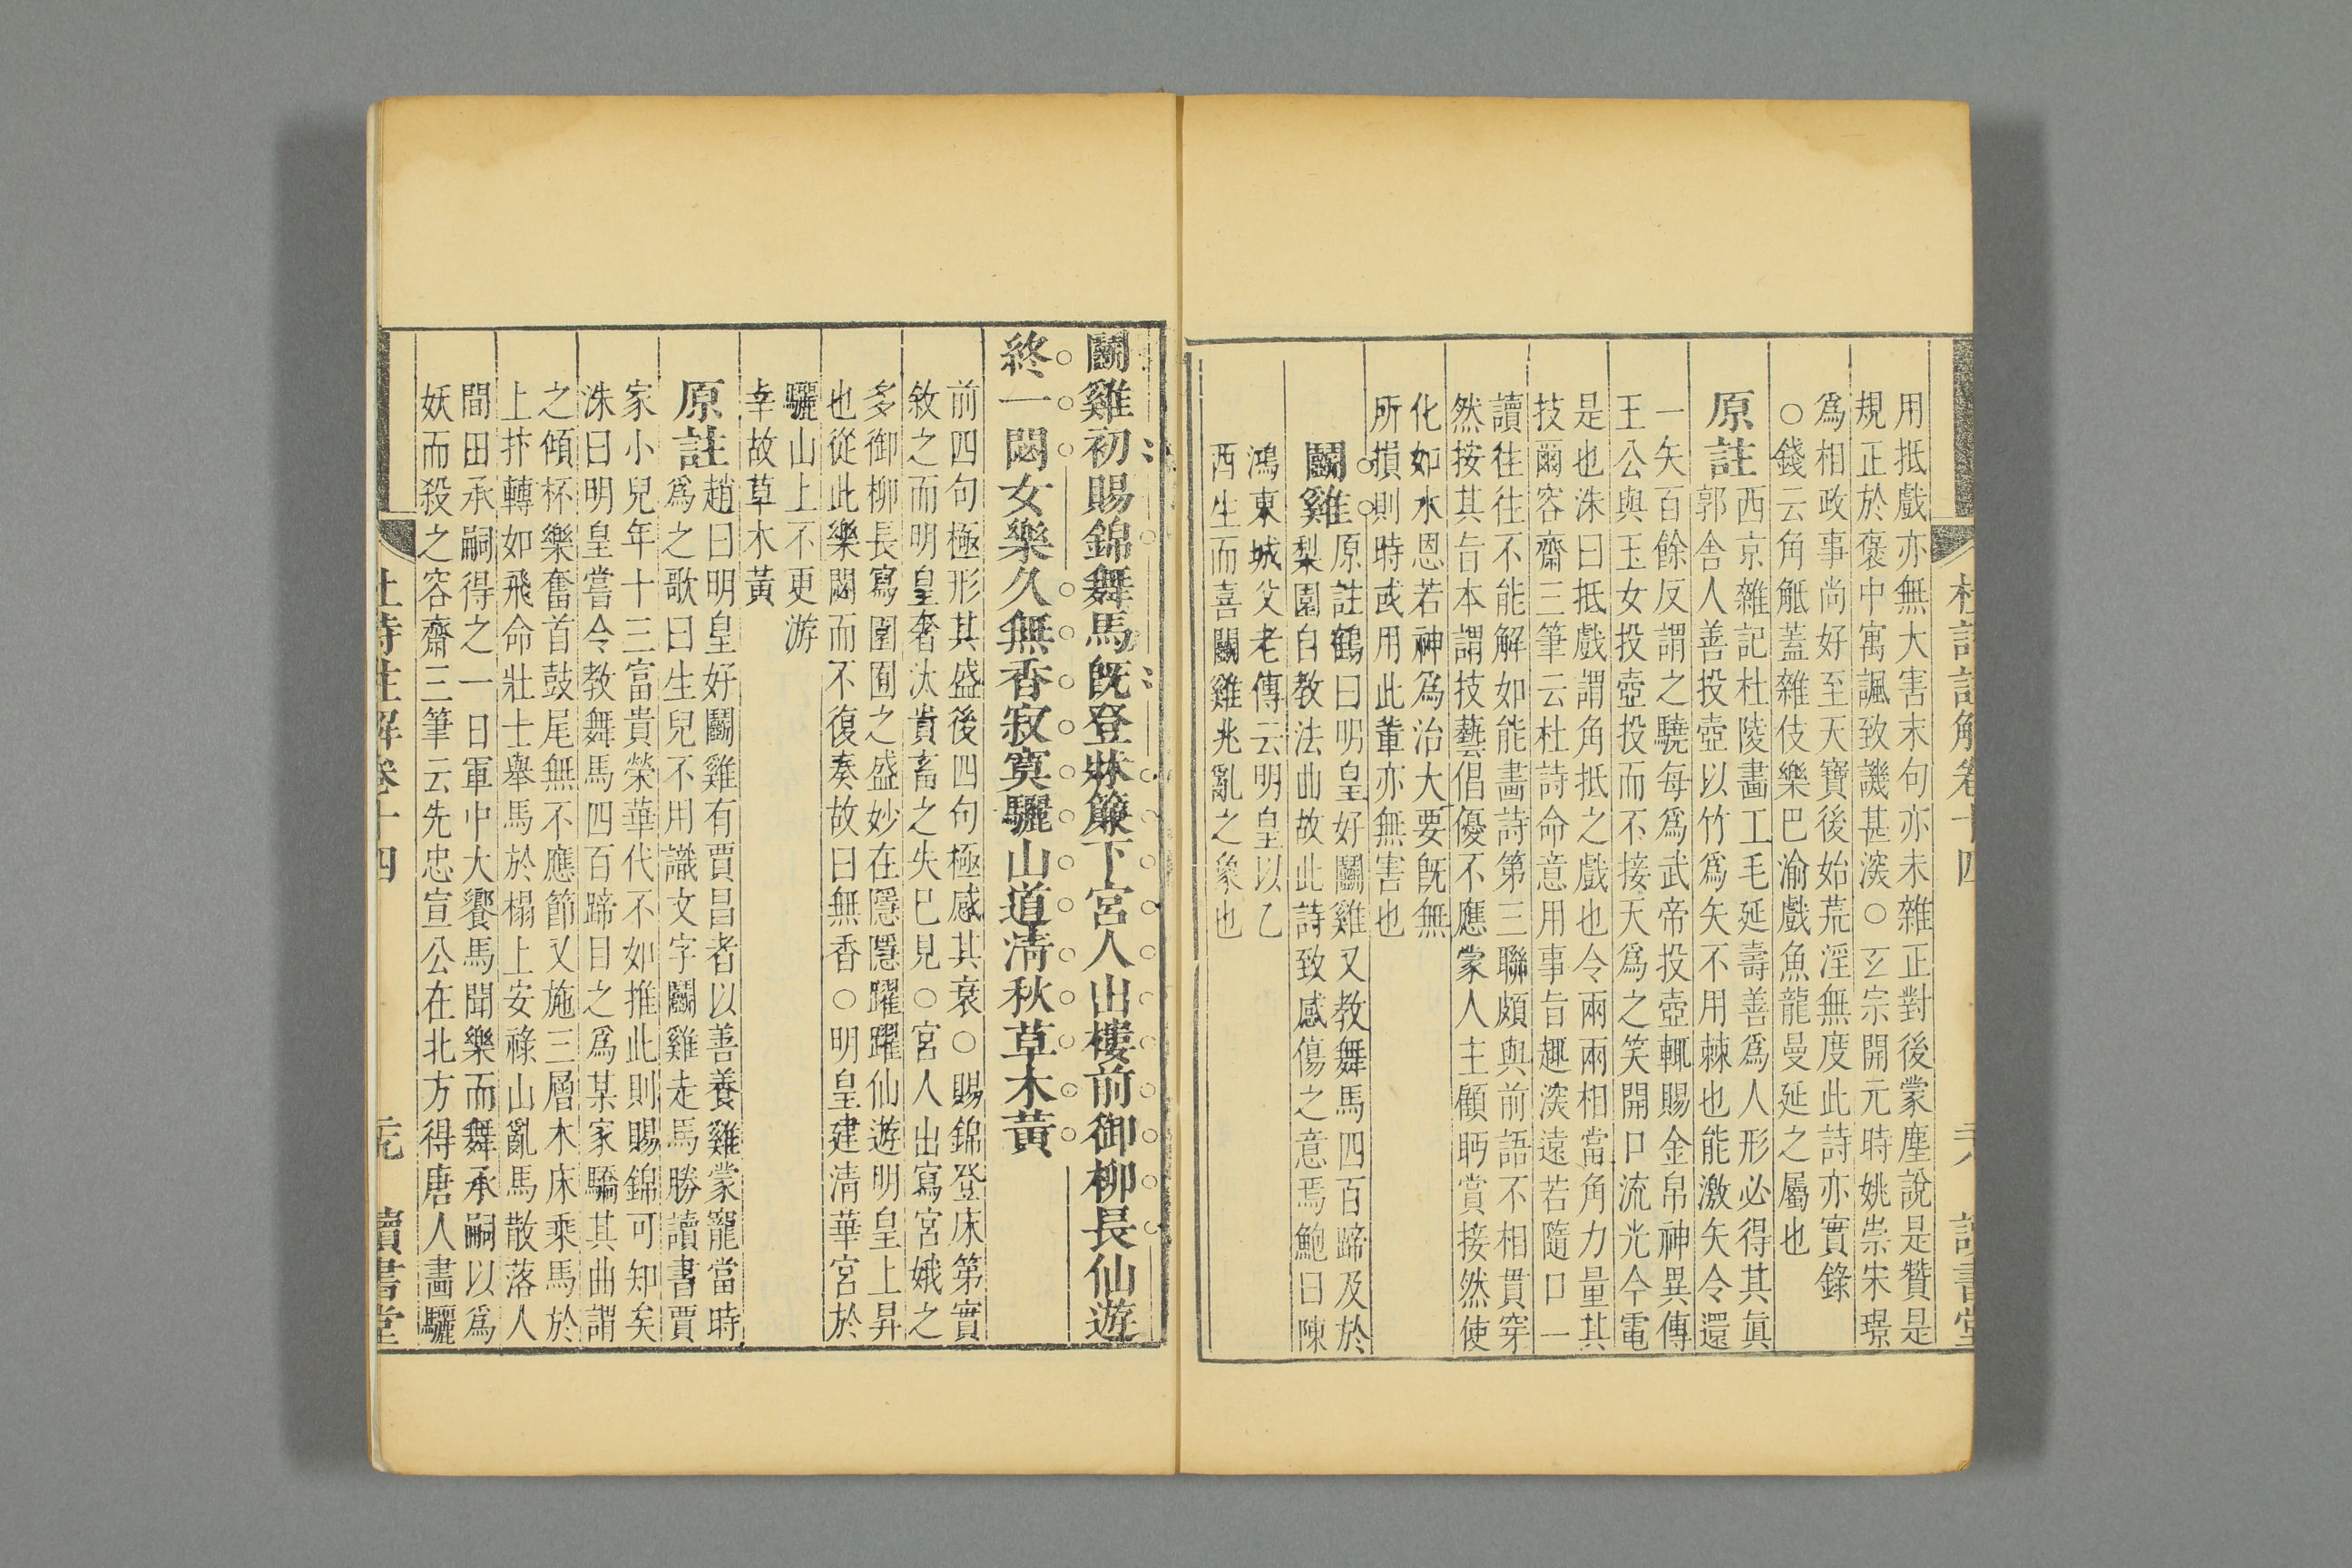 杜詩註解卷十四
讀書堂
用抵戲亦無大害末句亦未雜正對後蒙塵說是贊是
規正於褒中寓諷致譏甚深○玄宗開元時姚崇宋璟
為相政事尚好至天寶後始荒淫無度此詩亦實錄
○錢云角觝蓋雜伎樂巴渝戲魚龍曼延之屬也
原註
西京雜記杜陵畫工毛延壽善為人形必得其眞
郭舍人善投壺以竹為矢不用棘也能激矢令還
一矢百餘反謂之驍每為武帝投壺輒賜金帛神異傳
王公與玉女投壺投而不接天為之笑開口流光今電
是也洙曰抵戲謂角抵之戲也令兩兩相當角力量其
技爾容齋三筆云杜詩命意用事旨趣深遠若隨口一
讀往往不能解如能畫詩第三聯頗與前語不相貫穿
然按其旨本謂技藝倡優不應蒙人主顧眄賞接然使
化如水恩若神為治大要既無
所損則時或用此輩亦無害也
鬭雞
原註鶴曰明皇好鬭雞又教舞馬四百蹄及於
梨園自教法曲故此詩致感傷之意焉鮑曰陳
鴻東城父老傳云明皇以乙
酉生而喜鬭雞兆亂之象也
鬭雞初賜錦舞馬既登牀簾下宮人出樓前御柳長仙遊
終一閟女樂久無香寂寞驪山道清秋草木黃
前四句極形其盛後四句極感其衰○賜錦登床第實
敘之而明皇奢汰貴畜之失已見○宮人出寫宮娥之
多御柳長寫園囿之盛妙在隱隱躍躍仙遊明皇上昇
也從此樂閟而不復奏故曰無香○明皇建清華宮於
驪山上不更游
幸故草木黃
原註
趙曰明皇好鬭雞有賈昌者以善養雞蒙寵當時
為之歌曰生兒不用識文字鬭雞走馬勝讀書賈
家小兒年十三富貴榮華代不如推此則賜錦可知矣
洙曰明皇嘗令教舞馬四百蹄目之為某家驕其曲謂
之傾杯樂奮首鼓尾無不應節又施三層木床乘馬於
上抃轉如飛命壯士舉馬於榻上安祿山亂馬散落人
間田承嗣得之一日軍中大饗馬聞樂而舞承嗣以為
妖而殺之容齋三筆云先忠宣公在北方得唐人畫驪
杜詩註解卷十四
讀書堂